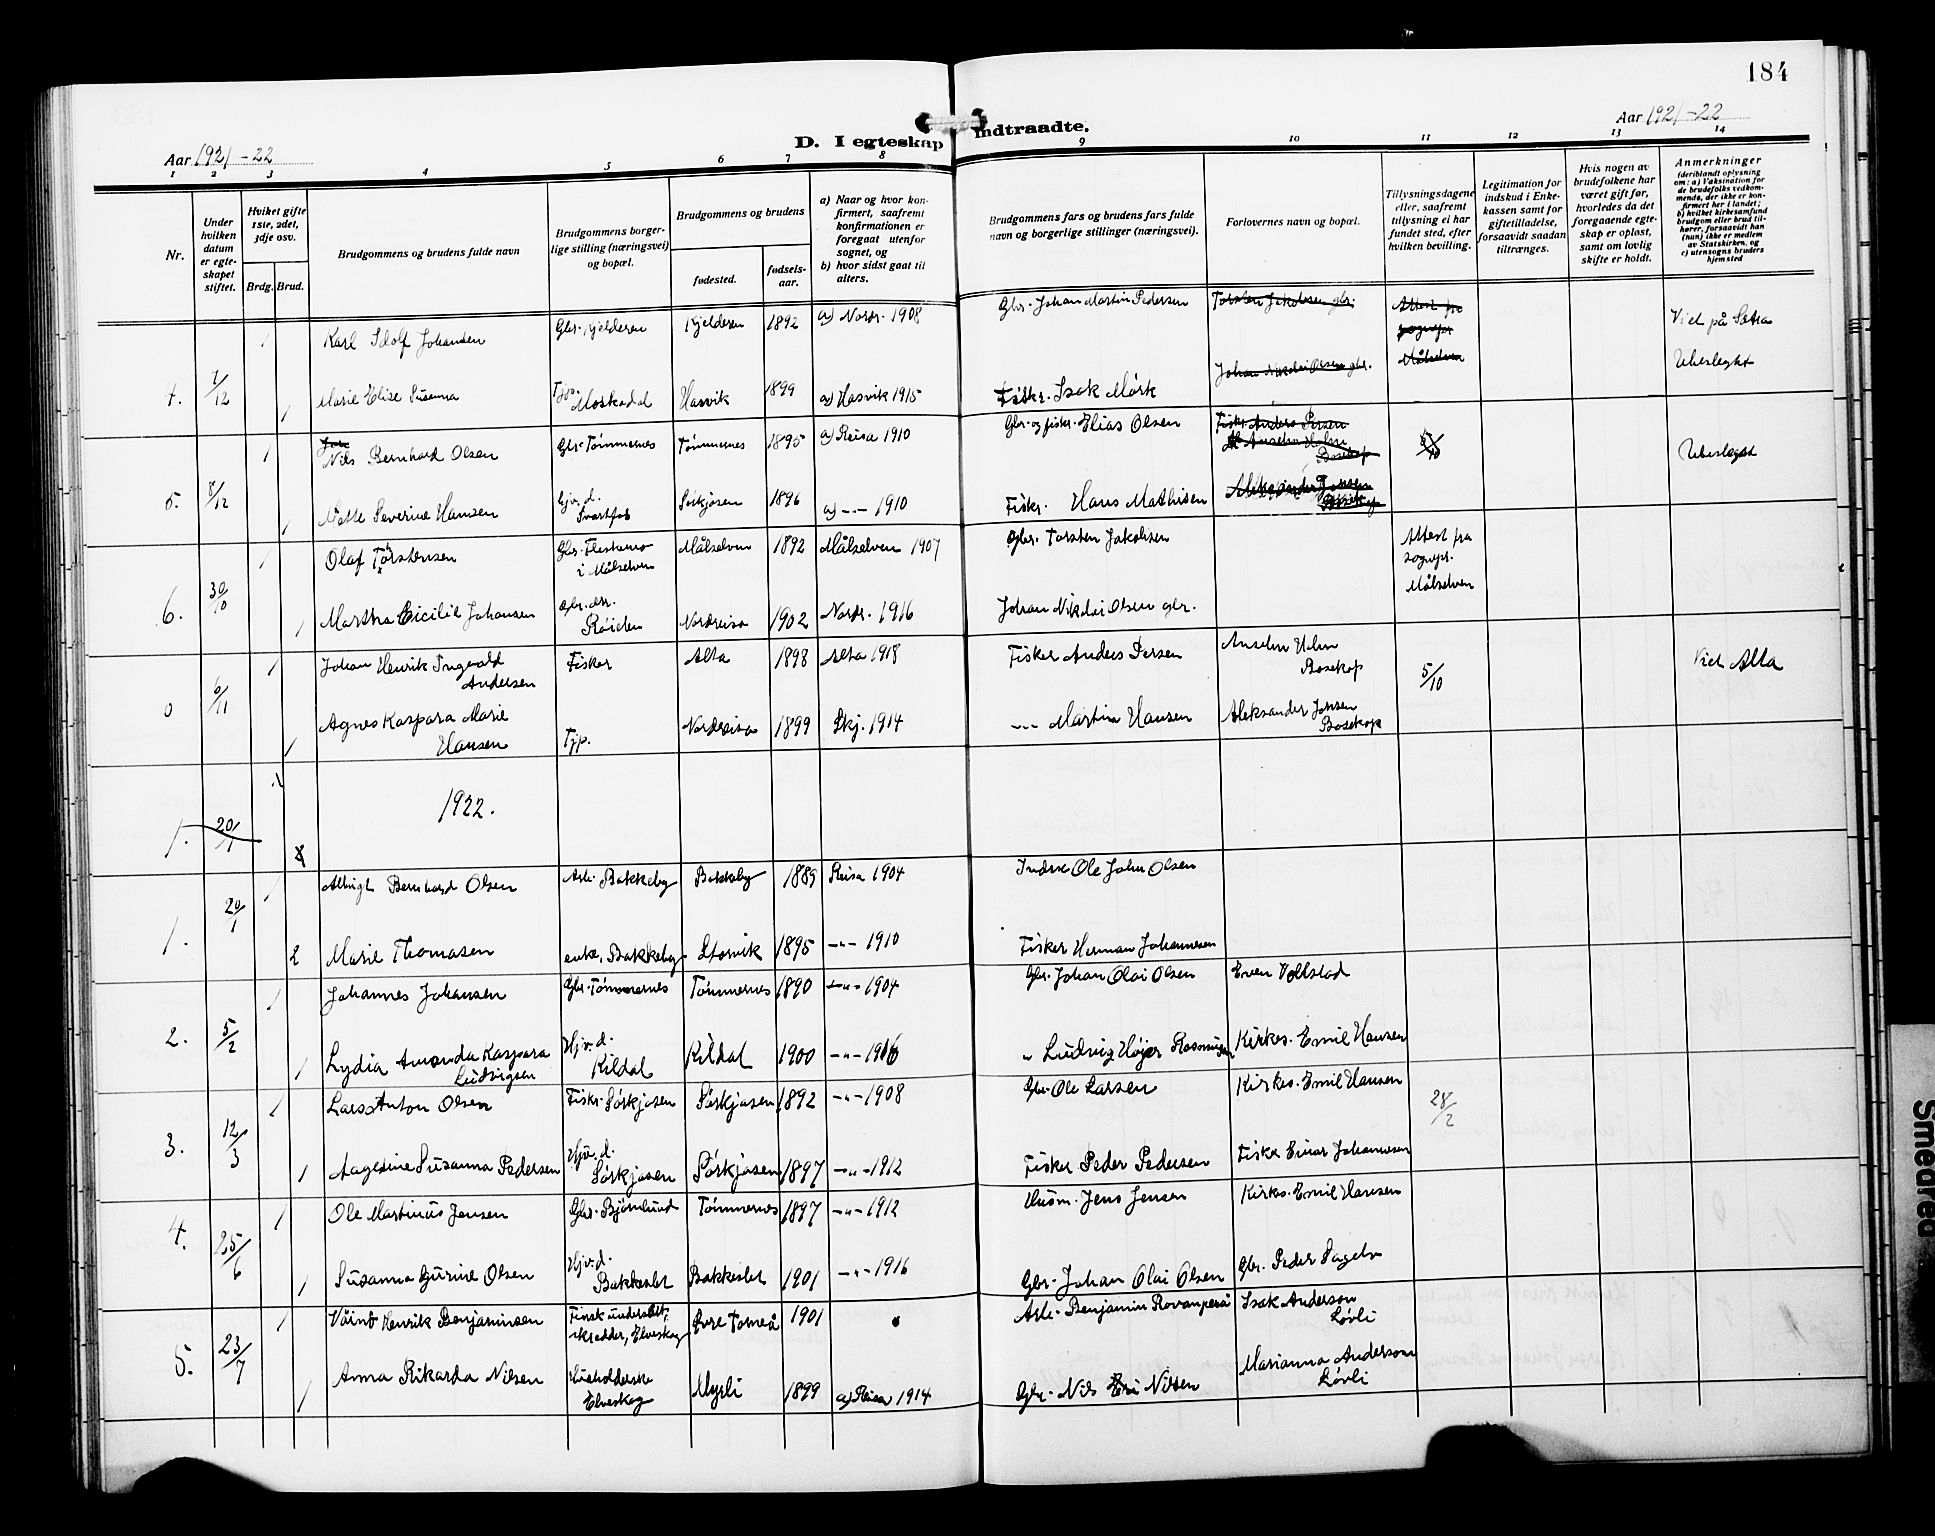 184
D. I egteskap indtraadte.
Aar 1921-22
Aar 1921-22
1 2 3 4 5 6 7 8 9 10 11 12 13 14
Nr.
Under hvilken datum er egteskapet stiftet.
Hviket gifte 1ste, 2det, 3dje osv.
Brdg. Brud.
Brudgommens og brudens fulde navn
Brudgommens borgerlige stilling (næringsvei) og bopæl.
Brudgommens og brudens
fødested.
fødselsaar.
a) Naar og hvor konfirmert, saafremt konfirmationen er foregaat utenfor sognet, og
b) hvor sidst gaat til alters.
Brudgommens fars og brudens fars fulde navn og borgerlige stillinger (næringsvei).
Forlovernes navn og bopæl.
Tillysningsdagene eller, saafremt tillysning ei har fundet sted, efter hvilken bevilling.
Legitimation for indskud i Enkekassen samt for giftetilladelse, forsaavidt saadan tiltrænges.
Hvis nogen av brudefolkene har været gift før, hvorledes da det foregaaende egteskap er opløst, samt om lovlig skifte er holdt.
Anmerkninger (deriblandt oplysning om: a) Vaksination for de brudefolks vedkommende, der ikke er konfirmert her i landet; b) hvilket kirkesamfund brudgom eller brud tilhører, forsaavidt han (hun) ikke er medlem av Statskirken, og c) utensogns bruders hjemsted
1 Karl Idolf Johansen Gbr. Kjelderen Kjelderen 1892 a) Nordr. 1908 Gbr. Johan Martin Pedersen Torsten Jakobsen gbr. Attest fra sognepr. Målselven Viet på Sætra
4. 7/12 1 Marie Elise Susanna Tjp. Moskadal Hasvik 1899 a) Hasvik 1915 Fisker. Isak Mörk Johan Nikolai Olsen gbr. Uberlegat
1 Nils Bernhard Olsen Gbr. Tömmernes Tömmernes 1895 a) Reisa 1910 Gbr. og fisker. Elias Olsen Fisker Anders Persen Anselm Holm Bosekop Uberlegat
5. 8/12 1 Mette Severine Hansen Hjv. d. Svartfos Sörkjosen 1896 a) -"- 1910 Fiskr. Hans Mathisen Aleksander Jonsen Bosekop
1 Olaf Törstensen Gbr. i Målselven Målselven 1892 Målselven 1907 Gbr. Torsten Jakobsen Attest fra sognepr. Målselven
6. 30/10 1 Martha Cicilie Johansen Gbr. dtr. Röielen Nordreisa 1902 Nordr. 1916 Johan Nikolai Olsen gbr.
1 Johan Henrik Ingvald Andersen Fisker Alta 1898 Alta 1918 Fisker Anders Persen Anselm Holm Bosekop 5/10 Viet Alta
0 6/11 1 Agnes Kaspara Marie Hansen Tjp. Nordreisa 1899 Skj. 1914 -"- Martin Hansen Aleksander Jonsen Bosekop
1922.
1. 20/1
1 Albrigt Bernhard Olsen Arb. Bakkeby Bakkeby 1889 Reisa 1904 Inderst Ole Johan Olsen
1. 20/1 2 Marie Thomasen enke, Bakkeby Storvik 1895 -"- 1910 Fisker Herman Johannesen
1 Johannes Johansen Gbr. Tömmernes Tömmernes 1890 -"- 1904 Gbr. Johan Olai Olsen Even Vollstad
2. 5/2 1 Lydia Amanda Kaspara Ludvigsen Hjv. d. Kildal Kildal 1900 -"- 1916 " Ludvig Höjer Rasmussen Kirkes. Emil Hansen
1 Lars Anton Olsen Fiskr. Sörkjosen Sörkjosen 1892 -"- 1908 Gbr. Ole Larsen Kirkes. Emil Hansen 28/2
3. 12/3 1 Aagedine Susanna Pedersen Hjv. d. Sörkjosen Sörkjosen 1897 -"- 1912 Fisker Peder Pedersen Fisker Einar Johannesen
1 Ole Martinus Jensen Gbr. Björnlund Tömmernes 1897 -"- 1912 Husm. Jens Jensen Kirkes. Emil Hansen
4. 25/6 1 Susanna Gurine Olsen Hjv. d. Bakkeslet Bakkeslet 1901 -"- 1916 Gbr. Johan Olai Olsen Gbr. Peder Sagelv
1 Väinö Henrik Benjaminsen Finsk undersått, skredder, Elveskog Övre Torneå 1901 Arb. Benjamin Rovanperä Isak Anderson Lövli
5. 23/7 1 Anna Rikarda Nilsen Husholderske Elveskog Myrli 1899 a) Reisa 1914 Gbr. Nils Nilsen Marianna Anderson Lövli
Smeared